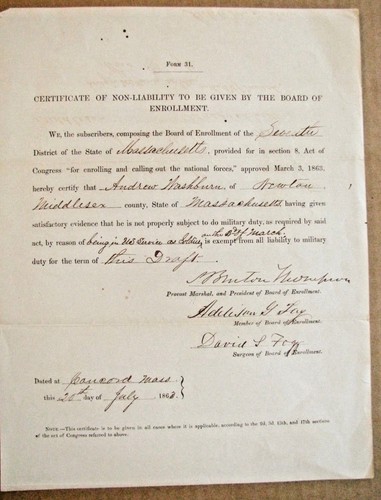 FORM 31.
CERTIFICATE OF NON-LIABILITY TO BE GIVEN BY THE BOARD OF
ENROLLMENT.
WE, the subscribers, composing the Board of Enrollment of the Seventh
District of the State of Massachusetts, provided for in section 8, Act of
Congress "for enrolling and calling out the national forces," approved March 3, 1863,
hereby certify that Andrew Washburn, of Newton,
Middlesex county, State of Massachusetts having given
satisfactory evidence that he is not properly subject to military duty, as required by said
on the 3d of March
act, by reason of being in US Service as Soldier is exempt from all liability to military
duty for the term of this Draft.
Thompson
Provost Marshal, and President of Board of Enrollment.
Addison G Fay
Member of Board of Enrollment.
David S. Fogg
Surgeon of Board of Enrollment.
Dated at Concord Mass
this 20th day of July 1863.
NOTE.—This certificate is to be given in all cases where it is applicable, according to the 2d, 3d, 13th, and 17th sections
of the act of Congress referred to above.